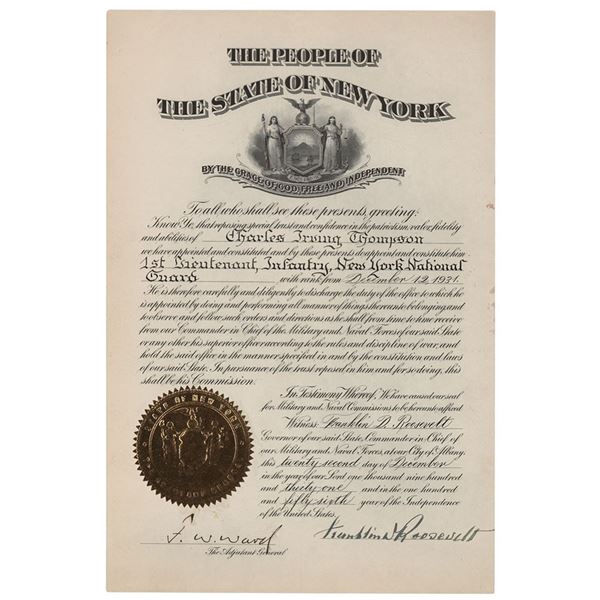 THE PEOPLE OF
THE STATE OF NEW YORK
BY THE GRACE OF GOD, FREE AND INDEPENDENT
To all who shall see these presents, greeting:
Know Ye, that reposing special trust and confidence in the patriotism, valor, fidelity
and abilities of Charles Irving Thompson
we have appointed and constituted and by these presents do appoint and constitute him
1st Lieutenant, Infantry, New York National
Guard with rank from December 12, 1931.
He is therefore carefully and diligently to discharge the duty of the office to which he
is appointed by doing and performing all manner of things thereunto belonging, and
to observe and follow such orders and directions as he shall from time to time receive
from our Commander in Chief of the Military and Naval Forces of our said State
or any other his superior officer according to the rules and discipline of war; and
hold the said office in the manner specified in and by the constitution and laws
of our said State. In pursuance of the trust reposed in him and for so doing, this
shall be his Commission.
In Testimony Whereof, We have caused our seal
for Military and Naval Commissions to be hereunto affixed
Witness Franklin D. Roosevelt
Governor of our said State, Commander in Chief of
our Military and Naval Forces, at our City of Albany,
this twenty second day of December
in the year of our Lord one thousand nine hundred
and thirty one and in the one hundred
and fifty sixth year of the Independence
of the United States.
STATE OF NEW YORK
F. W. Ward
The Adjutant General
Franklin D Roosevelt